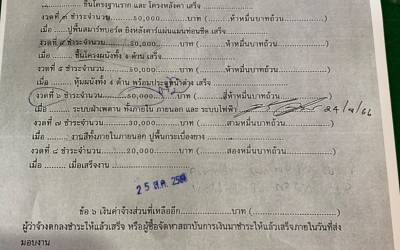 เมื่อ ........ ขึ้นโครงฐานราก และ โครงหลังคา เสร็จ
งวดที่ ๓ ชำระจำนวน ........50,000........บาท ( ........ห้าหมื่นบาทถ้วน
เมื่อ ........ ปูพื้นสมาร์ทบอร์ด ยิงหลังคาร์แผ่นแมนท่อนซีด เสร็จ
งวดที่ ๔ ชำระจำนวน ........50,000........บาท ( ........ห้าหมื่นบาทถ้วน
เมื่อ ........ ขึ้นโครงผนังทั้ง ๔ ด้าน เสร็จ
งวดที่ ๕ ชำระจำนวน ........50,000........บาท ( ........ห้าหมื่นบาทถ้วน
เมื่อ ........ หุ้มผนังทั้ง ๔ ด้าน พร้อม เสร็จ
งวดที่ ๖ ชำระจำนวน ........50,000........บาท ( ........สี่หมื่นบาทถ้วน
เมื่อ ........ ระบบฝ้าเพดาน ทั้งภายใน ภายนอก และ ระบบไฟฟ้า 24/8/66
งวดที่ ๗ ชำระจำนวน ........30,000........บาท ( ........สามหมื่นบาทถ้วน
เมื่อ ........ งานสีทั้งภายในภายนอก ปูพื้นกระเบื้องยาง
งวดที่ ๘ ชำระจำนวน ........20,000........บาท ( ........สองหมื่นบาทถ้วน
เมื่อ ........ เมื่อเสร็จงาน
25 ส.ค.
ข้อ ๖ เงินค่าจ้างส่วนที่เหลืออีก........................บาท (
ผู้ว่าจ้างตกลงชำระให้แล้วเสร็จ หรือผู้ซื้อจัดหาสถาบันการเงินมาชำระให้แล้วเสร็จภายในวันที่ส่ง
มอบงาน